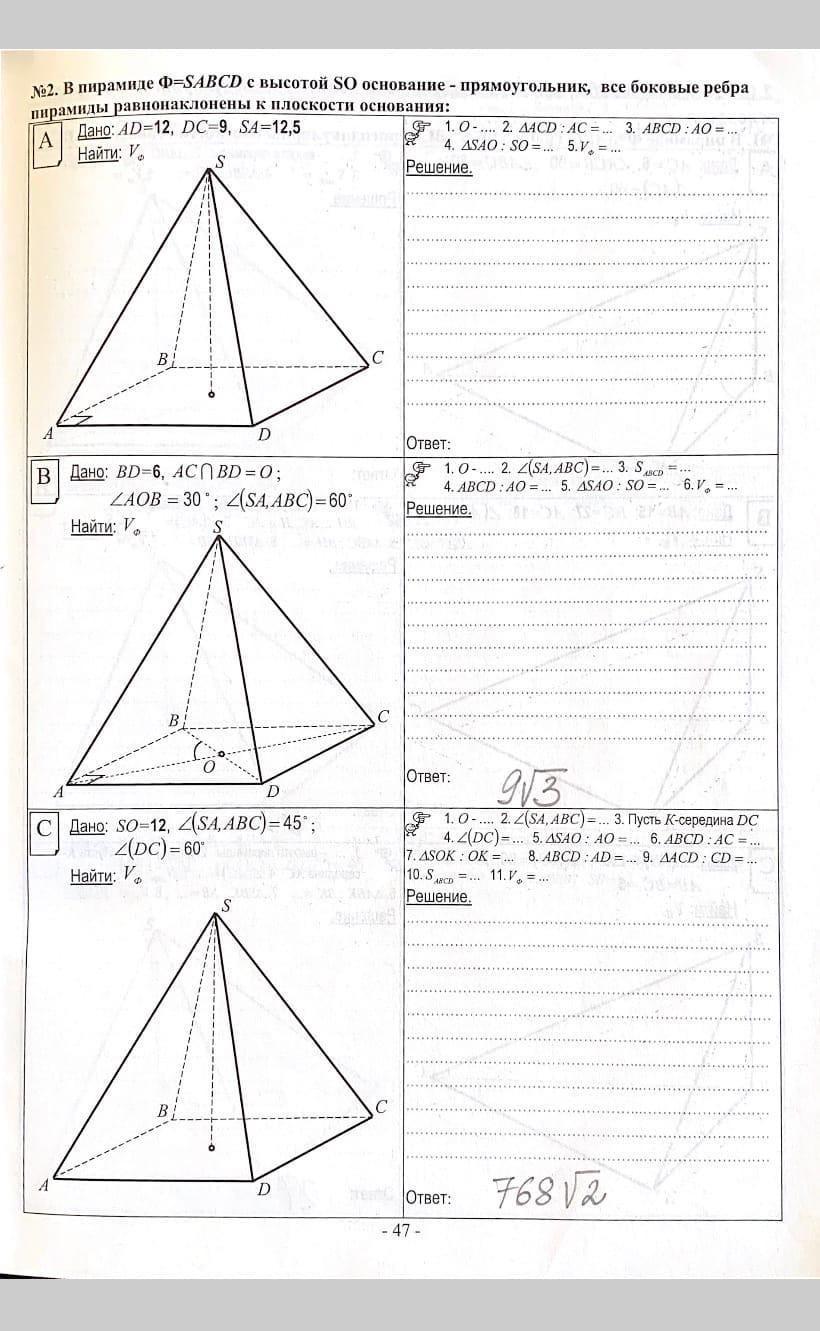 №2. В пирамиде Ф=SABCD с высотой SO основание - прямоугольник, все боковые ребра
пирамиды равнонаклонены к плоскости основания:
A
Дано: AD=12, DC=9, SA=12,5
Найти: VФ
S
B
C
A
D
1. O - .... 2. ΔACD : AC = ... 3. ABCD : AO = ...
4. ΔSAO : SO = ... 5. VФ = ...
Решение.
Ответ:
B
Дано: BD=6, AC⋂BD = O ;
∠AOB = 30° ; ∠(SA, ABC) = 60°
Найти: VФ
S
B
C
O
A
D
1. O - .... 2. ∠(SA, ABC) = ... 3. SABCD = ...
4. ABCD : AO = ... 5. ΔSAO : SO = ... 6. VФ = ...
Решение.
Ответ: 9√3
C
Дано: SO=12, ∠(SA, ABC) = 45° ;
∠(DC) = 60°
Найти: VФ
S
B
C
A
D
1. O - .... 2. ∠(SA, ABC) = ... 3. Пусть K-середина DC
4. ∠(DC) = ... 5. ΔSAO : AO = ... 6. ABCD : AC = ...
7. ΔSOK : OK = ... 8. ABCD : AD = ... 9. ΔACD : CD = ...
10. SABCD = ... 11. VФ = ...
Решение.
Ответ: 768√2
- 47 -